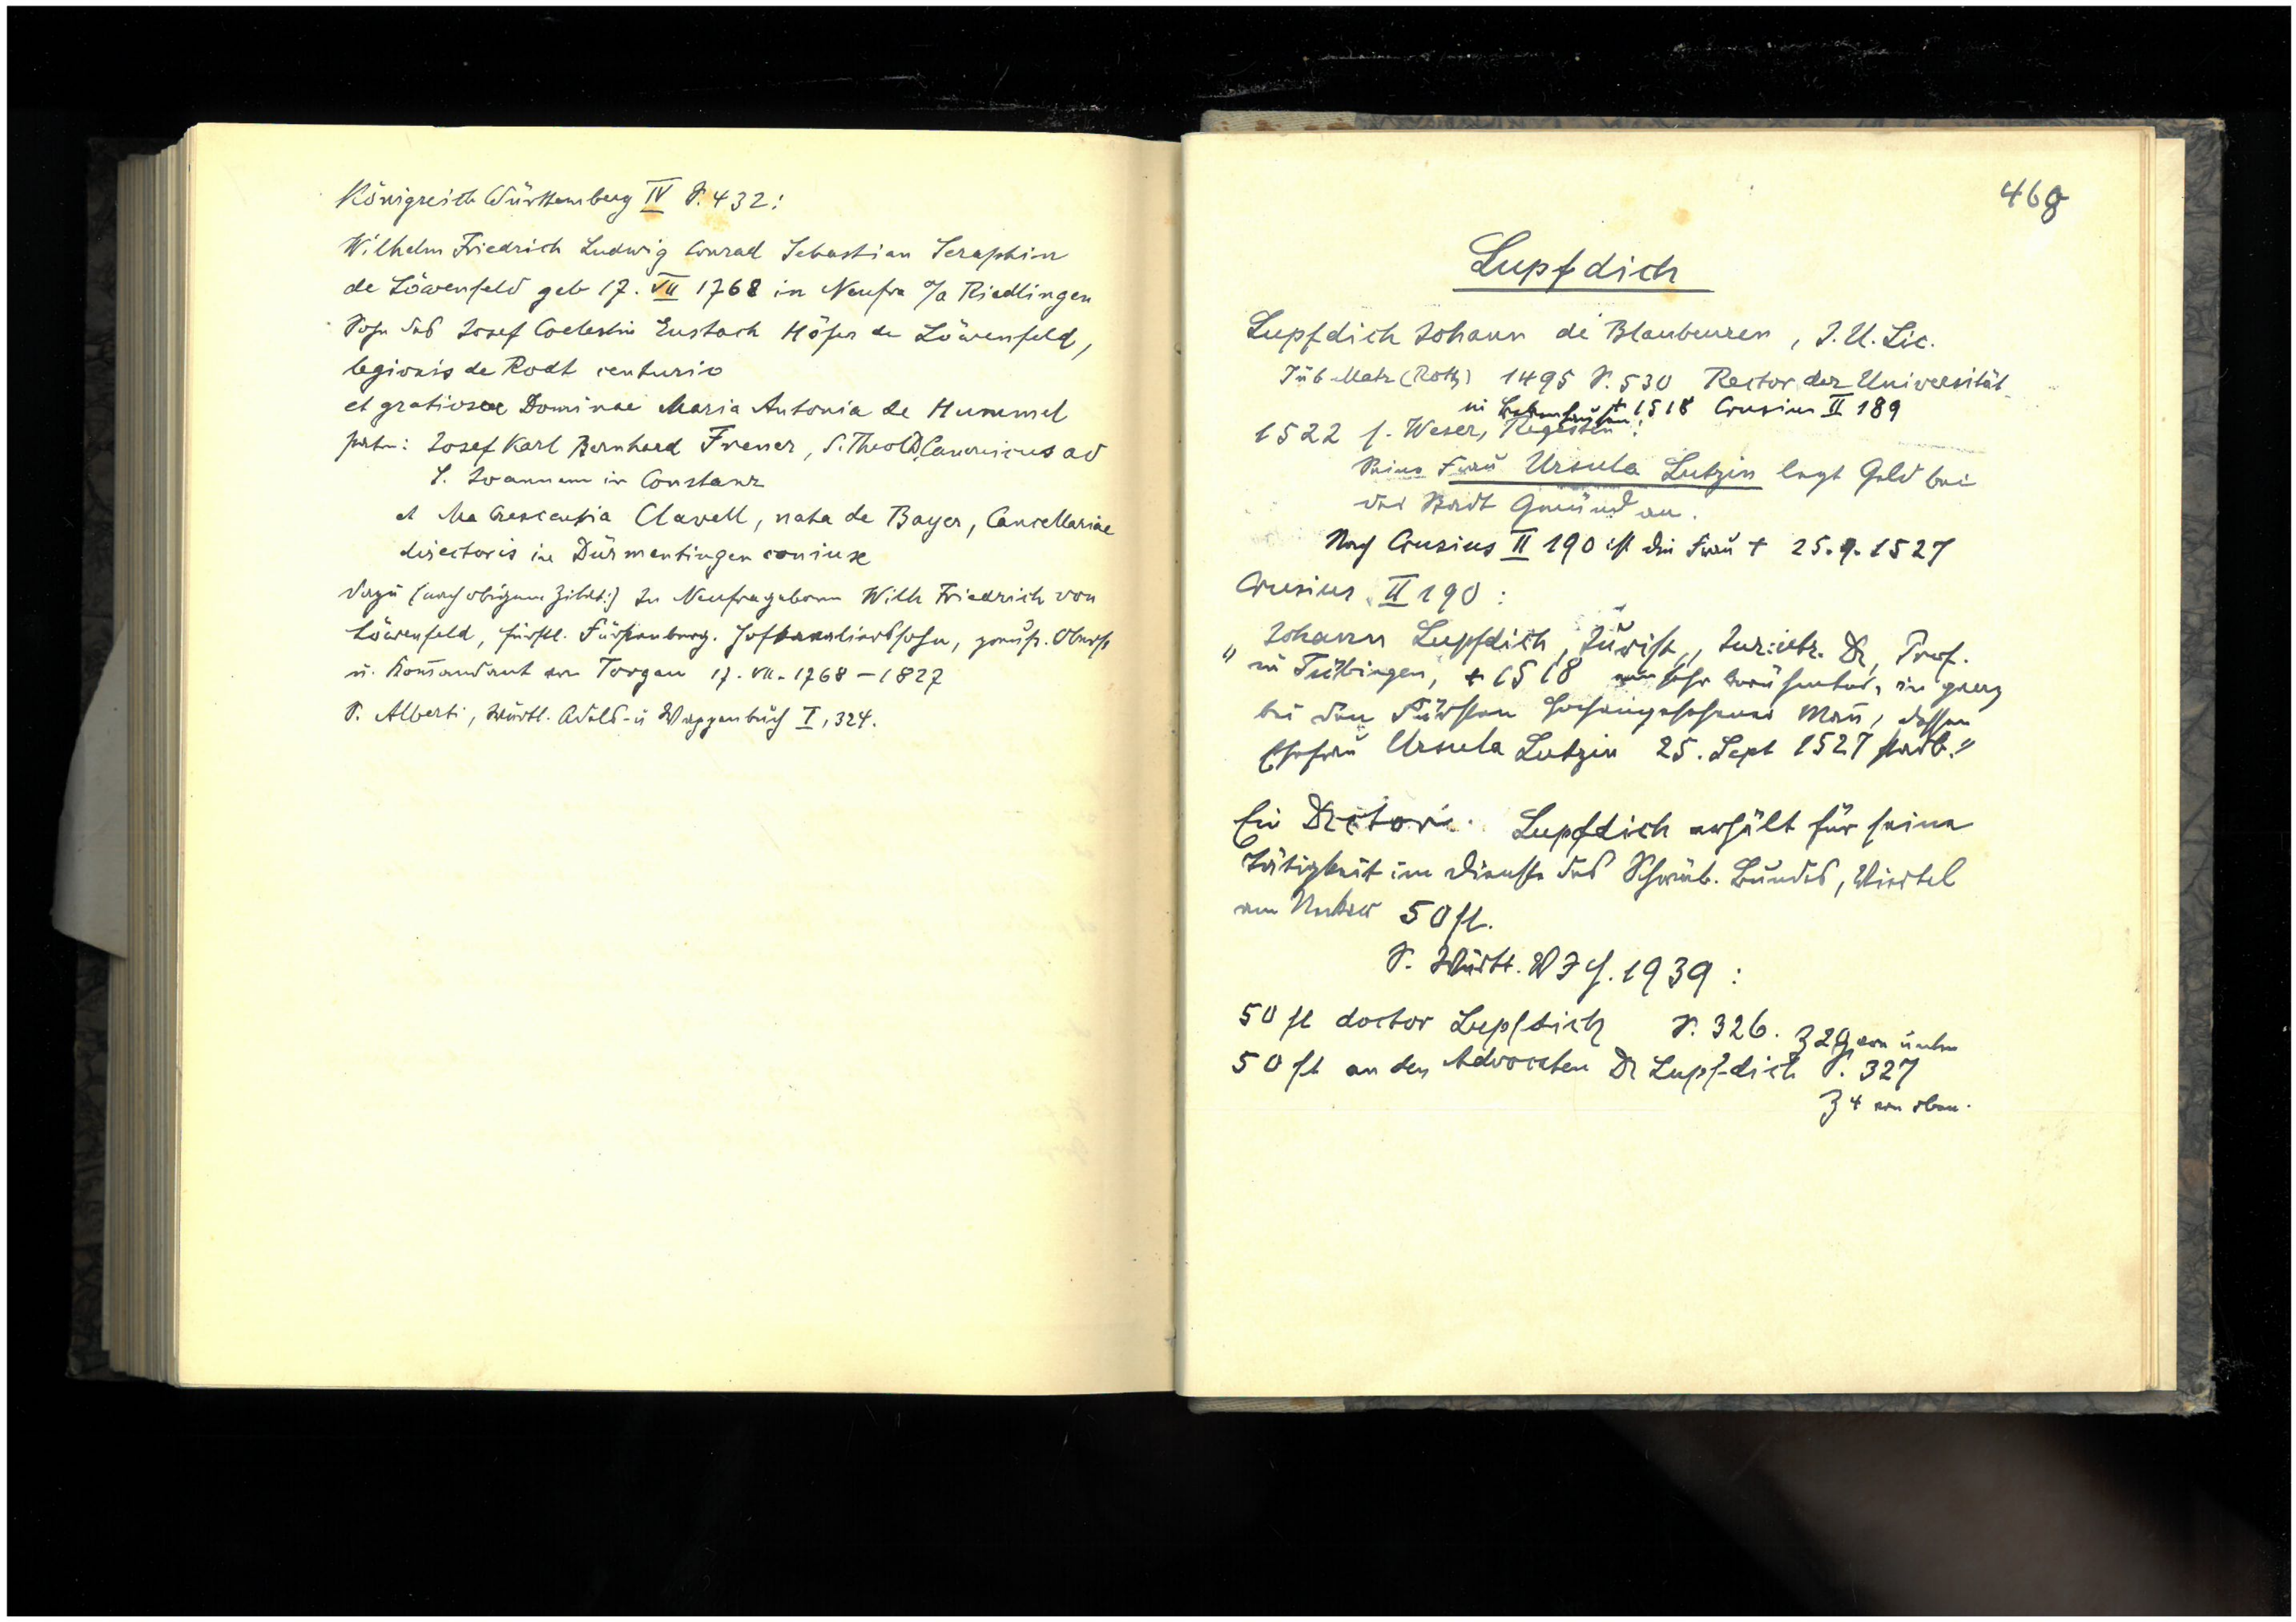 Königreich Württemberg IV S. 432:
Wilhelm Friedrich Ludwig Conrad Sebastian Seraphin
de Löwenfeld geb 17. VII 1768 in Neufra O/A Riedlingen
Sohn des Josef Coelestin Eustach Höfer de Löwenfeld,
legionis de Rodt centurio
et gratiosae Dominae Maria Antonia de Hummel
patr: Josef Karl Bernhard Frener, S. Theol D, Canonicus ad
S. Joannem in Constanz
et Ma Crescentia Clavell, nata de Bayer, Cancellariae
directoris in Dürmentingen coniux
dazu (nach obigem Zitat:) In Neufra geboren Wilh Friedrich von
Löwenfeld, fürstl. Fürstenberg. Hofkavalierssohn, preuß. Oberst
u. Komandant von Torgau 17. VII. 1768 – 1827
S. Alberti, Württ. Adels- u Wappenbuch I, 324.
468
Lupfdich
Lupfdich Johann de Blaubeuren, J. U. Lic.
Tüb Matr (Roth) 1495 S. 530 Rector der Universität
in † 1518 Crusius II 189
1522 s. Weser, Regesten:
Seine Frau Ursula Lutzin legt Geld bei
der Stadt Gmünd an.
Nach Crusius II 190 ist die Frau † 25. 9. 1527
Crusius II 190:
"Johann Lupfdich, Jurist, Jur. utr. Dr, Prof.
in Tübingen, † 1518 ein sehr berühmter, in ganz
bei den Fürsten hochangesehener Mañ, dessen
Ehefrau Ursula Lutzin 25. Sept 1527 starb."
Ein Doctor Lupfdich erhält für seine
Tätigkeit im Dienste des Schwäb. Bundes, Viertel
am Neckar 50 fl.
S. Württ. V J H. 1939:
50 fl doctor Lupfdich S. 326. Z 29 von unten
50 fl an den Advocaten Dr Lupfdich S. 327
Z 4 von oben.